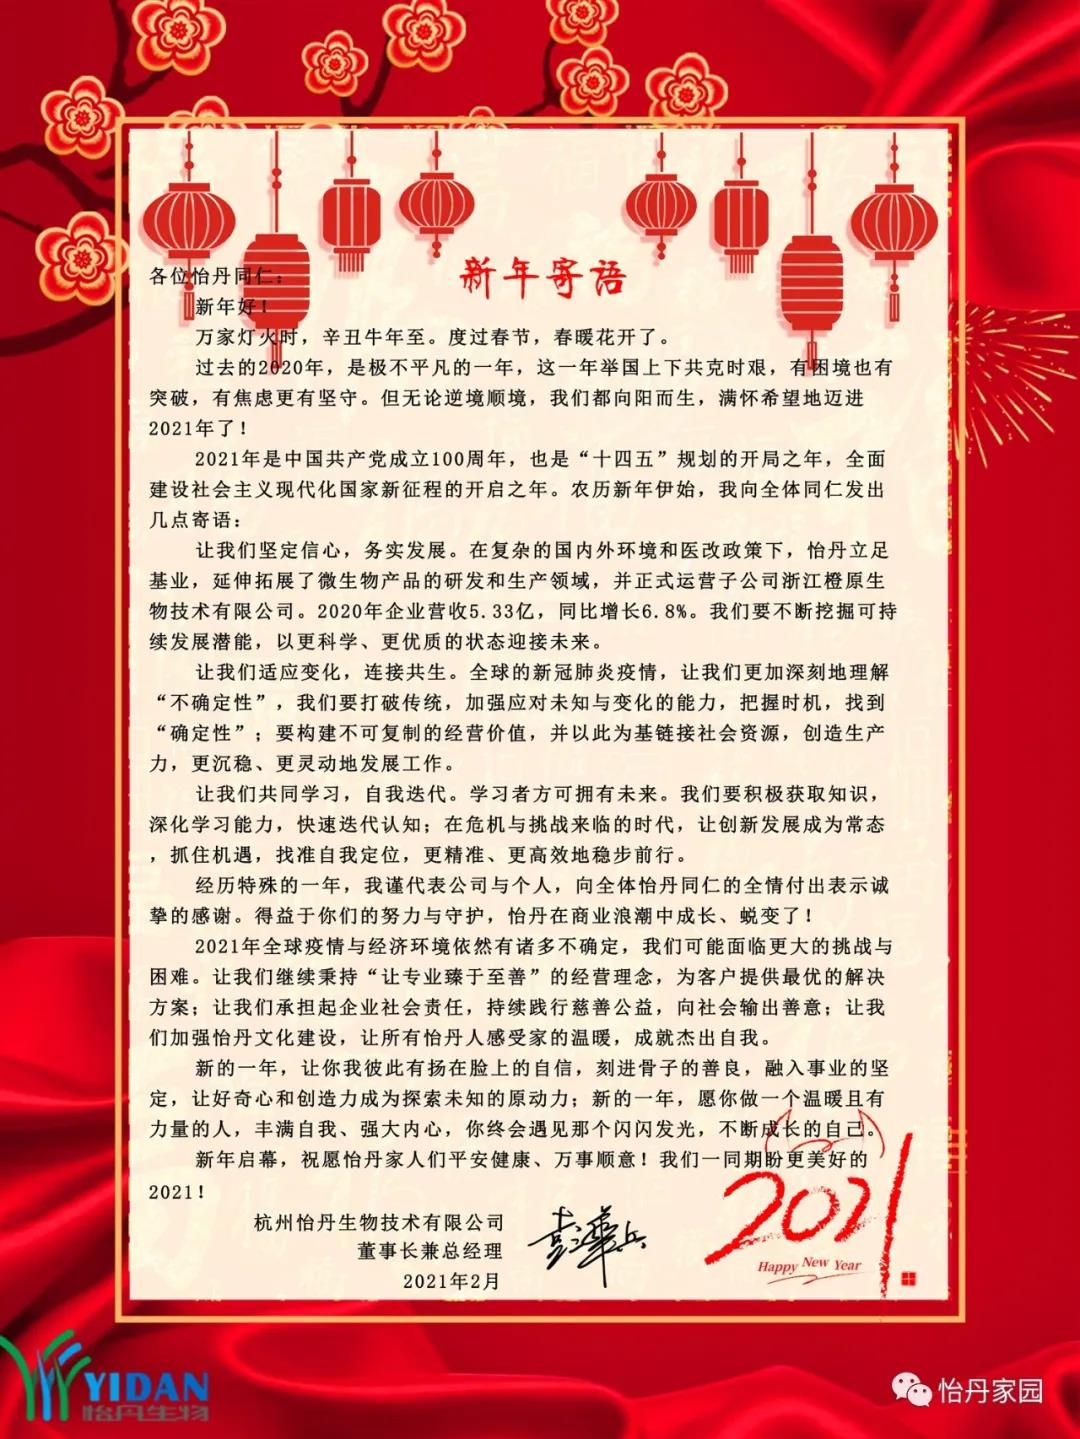 新年寄语
各位怡丹同仁：
新年好！
万家灯火时，辛丑牛年至。度过春节，春暖花开了。
过去的2020年，是极不平凡的一年，这一年举国上下共克时艰，有困境也有
突破，有焦虑更有坚守。但无论逆境顺境，我们都向阳而生，满怀希望地迈进
2021年了！
2021年是中国共产党成立100周年，也是“十四五”规划的开局之年，全面
建设社会主义现代化国家新征程的开启之年。农历新年伊始，我向全体同仁发出
几点寄语：
让我们坚定信心，务实发展。在复杂的国内外环境和医改政策下，怡丹立足
基业，延伸拓展了微生物产品的研发和生产领域，并正式运营子公司浙江橙原生
物技术有限公司。2020年企业营收5.33亿，同比增长6.8%。我们要不断挖掘可持
续发展潜能，以更科学、更优质的状态迎接未来。
让我们适应变化，连接共生。全球的新冠肺炎疫情，让我们更加深刻地理解
“不确定性”，我们要打破传统，加强应对未知与变化的能力，把握时机，找到
“确定性”；要构建不可复制的经营价值，并以此为基链接社会资源，创造生产
力，更沉稳、更灵动地发展工作。
让我们共同学习，自我迭代。学习者方可拥有未来。我们要积极获取知识，
深化学习能力，快速迭代认知；在危机与挑战来临的时代，让创新发展成为常态
，抓住机遇，找准自我定位，更精准、更高效地稳步前行。
经历特殊的一年，我谨代表公司与个人，向全体怡丹同仁的全情付出表示诚
挚的感谢。得益于你们的努力与守护，怡丹在商业浪潮中成长、蜕变了！
2021年全球疫情与经济环境依然有诸多不确定，我们可能面临更大的挑战与
困难。让我们继续秉持“让专业臻于至善”的经营理念，为客户提供最优的解决
方案；让我们承担起企业社会责任，持续践行慈善公益，向社会输出善意；让我
们加强怡丹文化建设，让所有怡丹人感受家的温暖，成就杰出自我。
新的一年，让你我彼此有扬在脸上的自信，刻进骨子的善良，融入事业的坚
定，让好奇心和创造力成为探索未知的原动力；新的一年，愿你做一个温暖且有
力量的人，丰满自我、强大内心，你终会遇见那个闪闪发光，不断成长的自己。
新年启幕，祝愿怡丹家人们平安健康、万事顺意！我们一同期盼更美好的
2021！
杭州怡丹生物技术有限公司
董事长兼总经理
2021年2月
2021
Happy New Year
YIDAN
怡丹生物
怡丹家园